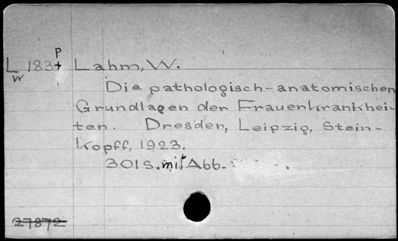 P
L 1834 Lahm, W.
W
Die pathologisch-anatomischen
Grundlagen der Frauenkrankhei-
ten. Dresden, Leipzig, Stein-
kopff, 1923.
301S. mit Abb.
27872